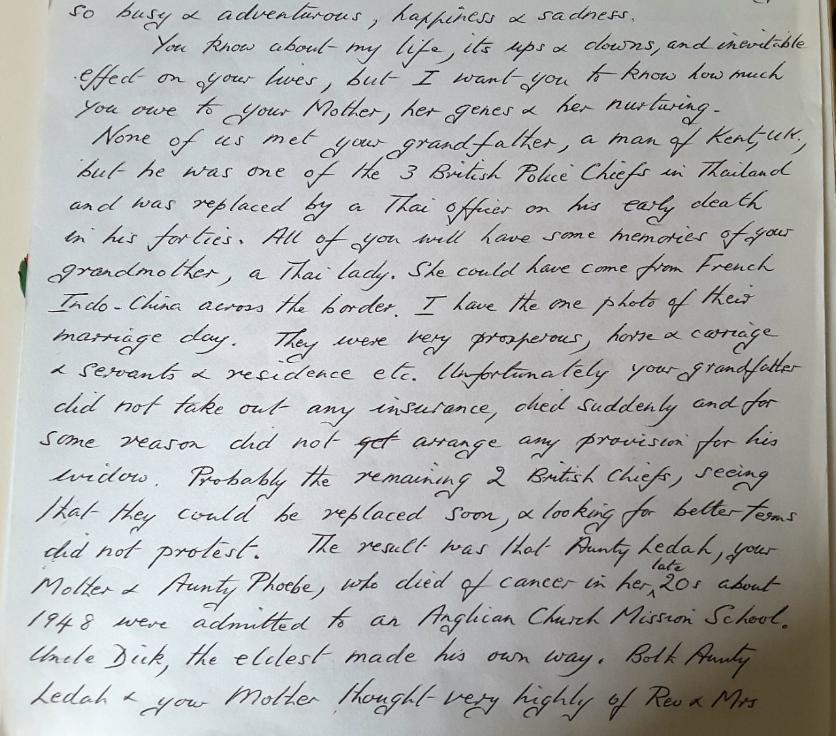 so busy & adventurous, happiness & sadness.
You know about my life, its ups & downs, and inevitable
effect on your lives, but I want you to know how much
you owe to your Mother, her genes & her nurturing.
None of us met your grandfather, a man of Kent, UK,
but he was one of the 3 British Police Chiefs in Thailand
and was replaced by a Thai officer on his early death
in his forties. All of you will have some memories of your
grandmother, a Thai lady. She could have come from French
Indo-China across the border. I have the one photo of their
marriage day. They were very prosperous, horse & carriage
& servants & residence etc. Unfortunately your grandfather
did not take out any insurance, died suddenly and for
some reason did not get arrange any provision for his
widow. Probably the remaining 2 British Chiefs, seeing
that they could be replaced soon, & looking for better terms
did not protest. The result was that Aunty Ledah, your
Mother & Aunty Phoebe, who died of cancer in her late 20s about
1948 were admitted to an Anglican Church Mission School.
Uncle Dick, the eldest made his own way. Both Aunty
Ledah & your Mother thought very highly of Rev & Mrs